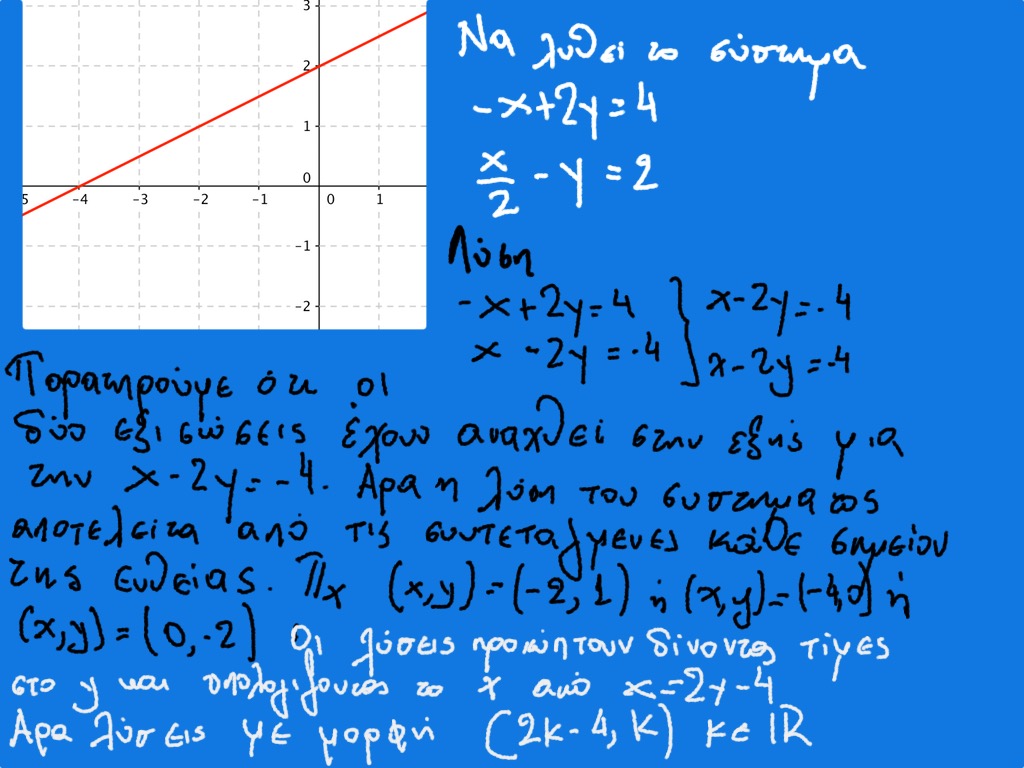 3
2
1
0
5 -4 -3 -2 -1 0 1
-1
-2
Να λυθεί το σύστημα
-x+2y=4
x/2 - y = 2
Λύση
-x+2y=4 } x-2y=-4
x -2y=-4 } x-2y=-4
Παρατηρούμε ότι οι
δύο εξισώσεις έχουν αναχθεί στην εξής μια
την x-2y=-4. Αρα η λύση του συστηματος
αποτελείται από τις συντεταγμενες κάθε σημείου
της ευθείας. Πx (x,y)=(-2,1) ή (x,y)=(-4,0) ή
(x,y)=(0,-2) Οι λύσεις προκύπτουν δίνοντας τίμες
στο y και υπολογιζοντας το x από x=2y-4
Αρα λύσεις με μορφή (2k-4,k) k∈ℝ